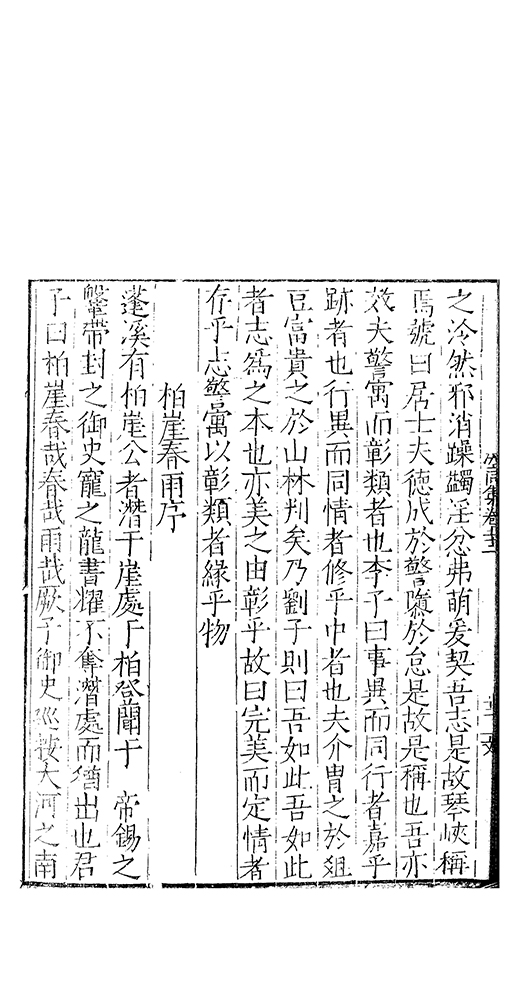 之泠然邪消躁蠲淫忿弗萌爰契吾志是故琴峽稱
焉號曰居士夫德成於警隳於怠是故是稱也吾亦
效夫警寓而彰類者也李子曰事異而同行者嘉乎
跡者也行異而同情者修乎中者也夫介胄之於俎
豆富貴之於山林判矣乃劉子則曰吾如此吾如此
者志爲之本也亦美之由彰乎故曰完美而定情者
存乎志警寓以彰類者緣乎物
柏崖春雨序
蓬溪有柏崖公者潛于崖處于柏登聞于 帝錫之
鞶帶封之御史寵之龍書耀不奪潛處而猶出也君
子曰柏崖春哉春哉雨哉厥子御史巡按大河之南